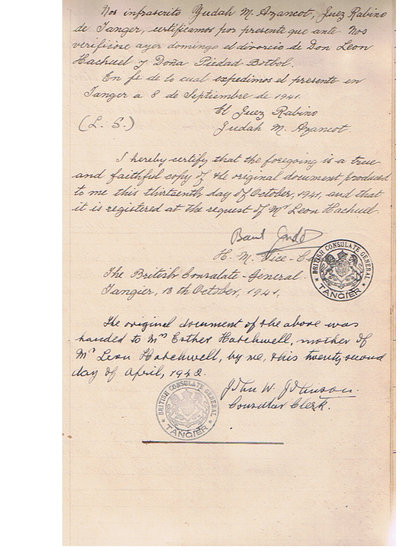 Nos infrascrito Yudah M. Azancot, Juez Rabino
de Tanger, certificamos por presente que ante Nos
verificose ayer domingo el divorcio de Don Leon
Hachuel y Doña Piedad Botbol.
En fe de lo cual expedimos el presente en
Tanger a 8 de Septiembre de 1941.
El Juez Rabino
(L. S.) Judah M. Azancot.
I hereby certify that the foregoing is a true
and faithful copy of the original document produced
to me this thirteenth day of October, 1941, and that
it is registered at the request of Mr Leon Hachuel
H. M. Vice-C
BRITISH CONSULATE GENERAL
TANGIER
The British Consulate-General
Tangier, 13th October, 1941.
The original document of the above was
handed to Mrs Esther Hatchwell, mother of
Mr Leon Hatchwell, by me, this twenty second
day of April, 1942.
BRITISH CONSULATE GENERAL
TANGIER
Consular Clerk.